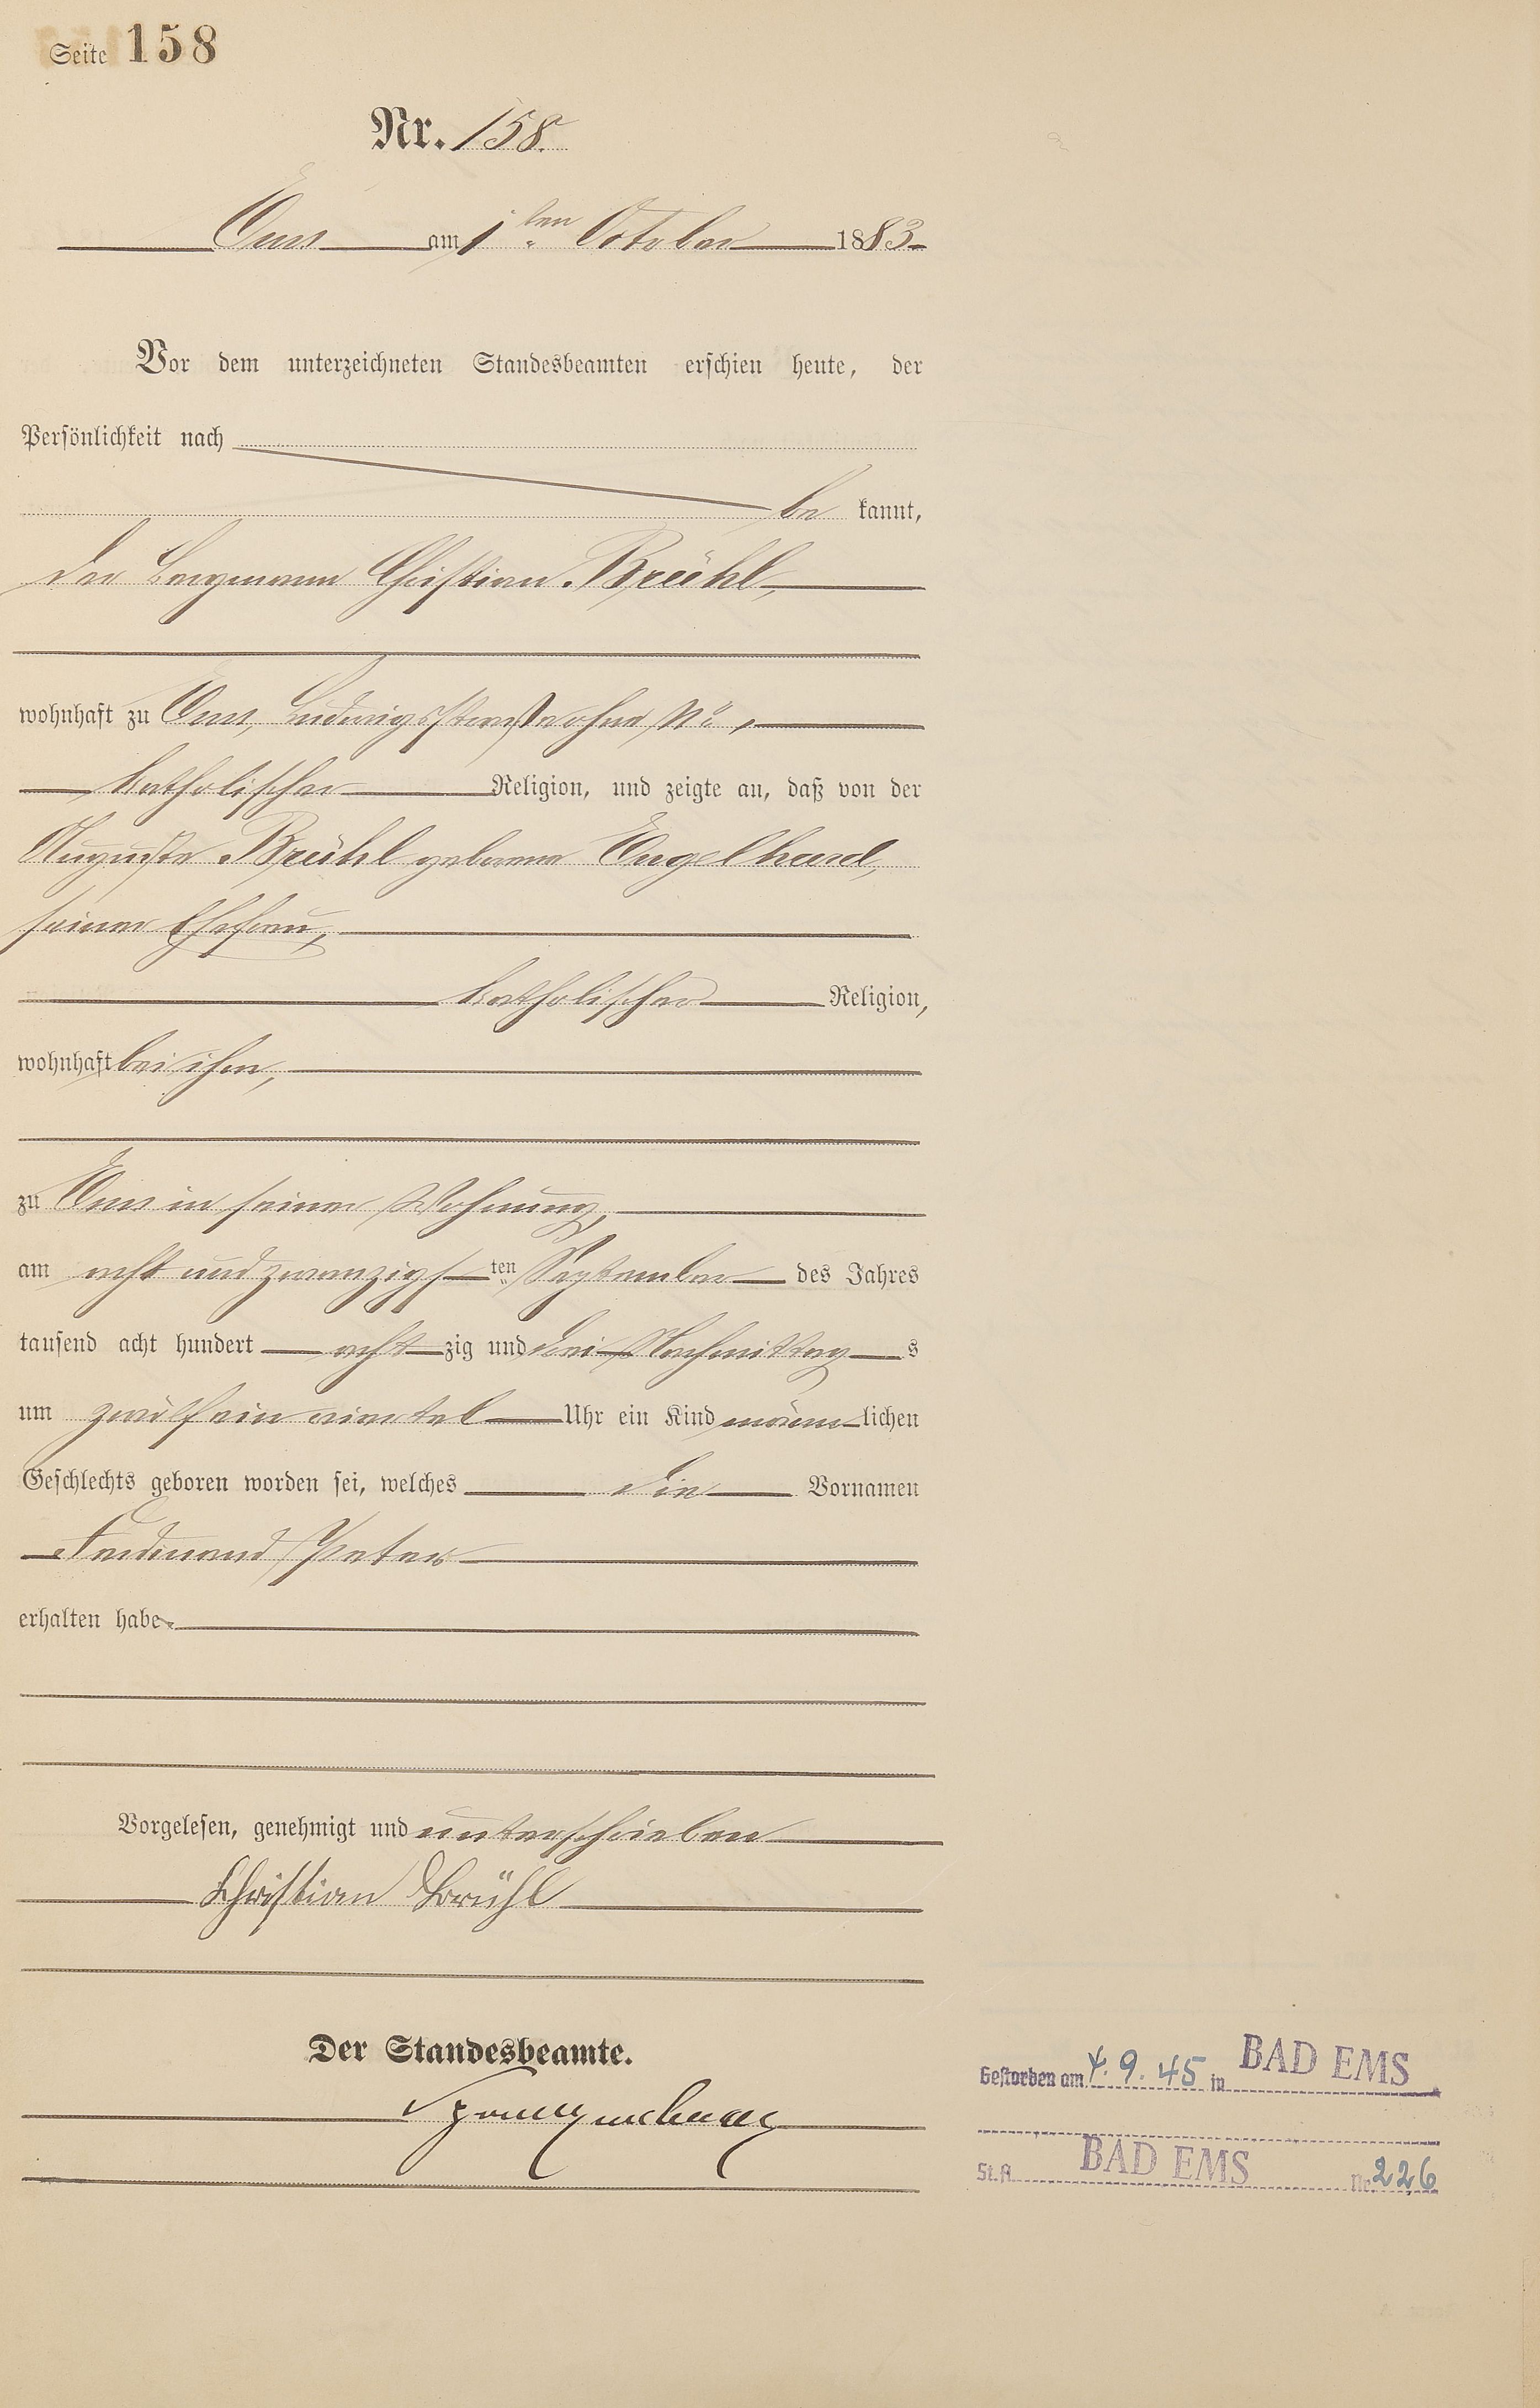 Seite 158
Nr. 158.
Ems am 1ten October 1883
Vor dem unterzeichneten Standesbeamten erschien heute, der
Persönlichkeit nach
be kannt,
der Bergmann Christian Brühl,
wohnhaft zu Ems, Ludwigsstraße ohne No,
katholischer Religion, und zeigte an, daß von der
Auguste Brühl geborene Engelhard,
seiner Ehefrau,
katholischer Religion,
wohnhaft bei ihm,
zu Ems in seiner Wohnung,
am acht und zwanzigs ten September des Jahres
tausend acht hundert acht zig und drei Nachmittag s
um zwölf ein viertel Uhr ein Kind männ lichen
Geschlechts geboren worden sei, welches die Vornamen
Ferdinand Peter
erhalten habe.
Vorgelesen, genehmigt und unterschrieben
Christian Brühl
Der Standesbeamte.
Gestorben am 4. 9. 45 in BAD EMS
St. A. BAD EMS Nr. 226